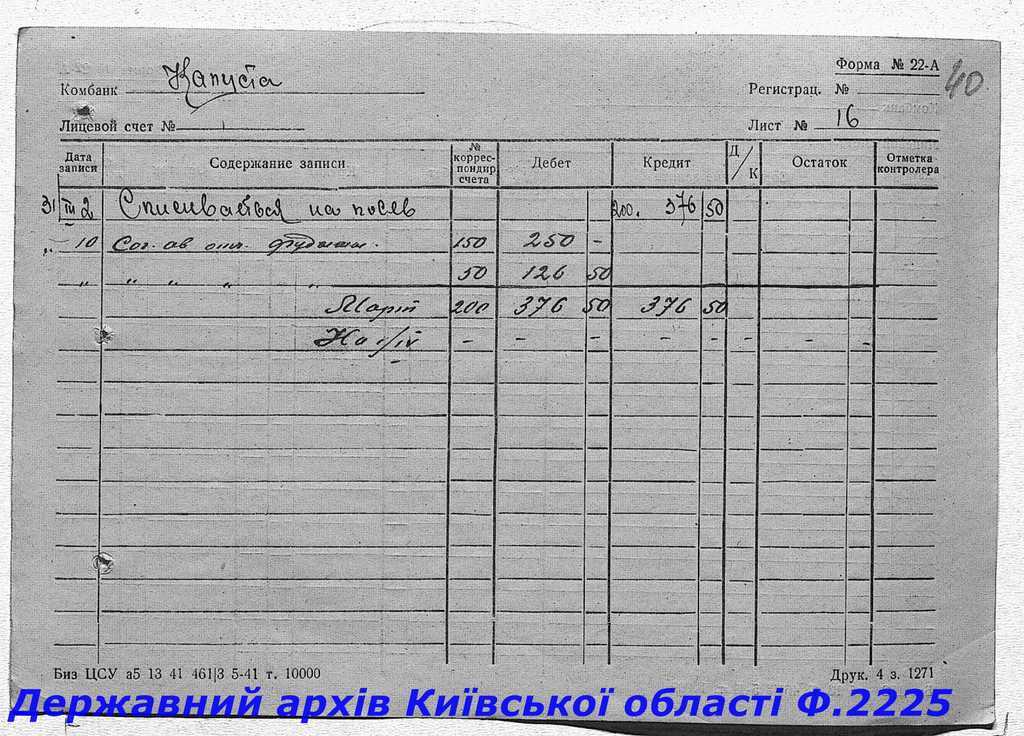 Форма № 22-А
40
Комбанк Капуста
Регистрац. №
Лицевой счет №
Лист № 16
Дата записи Содержание записи № коррес-пондир. счета Дебет Кредит Д/К Остаток Отметка контролера
31 III 2 Списывается на посев 200. 376 50
„ 10 Сог. ав 150 250 -
„ „ „ „ „ 50 126 50
Март 200 376 50 376 50
На 1/IV - - - - - - - -
Биз ЦСУ а5 13 41 461|3 5-41 т. 10000
Друк. 4 з. 1271
Державний архів Київської області Ф.2225